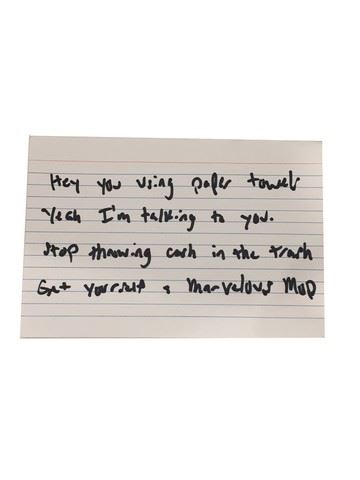 Hey you using paper towels
Yeah I'm talking to you.
Stop throwing cash in the trash
Get yourself a Marvelous Mop